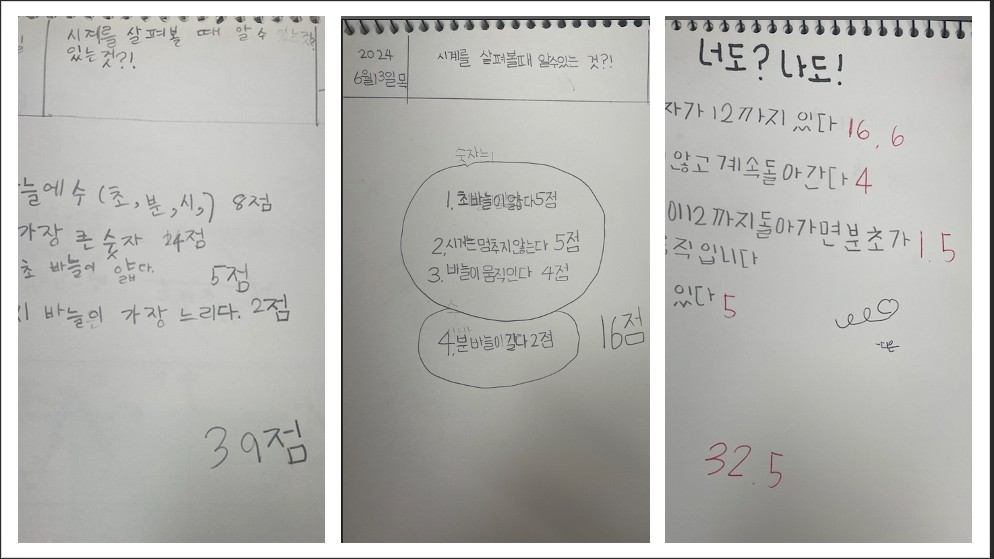 시계를 살펴볼 때 알 수 있는것
있는것?!
늘에 수 (초, 분, 시,) 8점
가장 큰 숫자 24점
초 바늘이 얇다. 5점
시 바늘의 가장 느리다. 2점
39점
2024
6월13일목
시계를 살펴볼때 알수있는 것?!
숫자는
1. 초바늘이얇다5점
2, 시가는멈추지않는다 5점
3. 바늘이움직인다 4점
4, 분바늘이길다2점
16점
너도? 나도!
자가 12까지 있다 16, 6
않고 계속돌아간다 4
이12까지돌아가면분초가 1.5
직입니다
있다 5
32.5